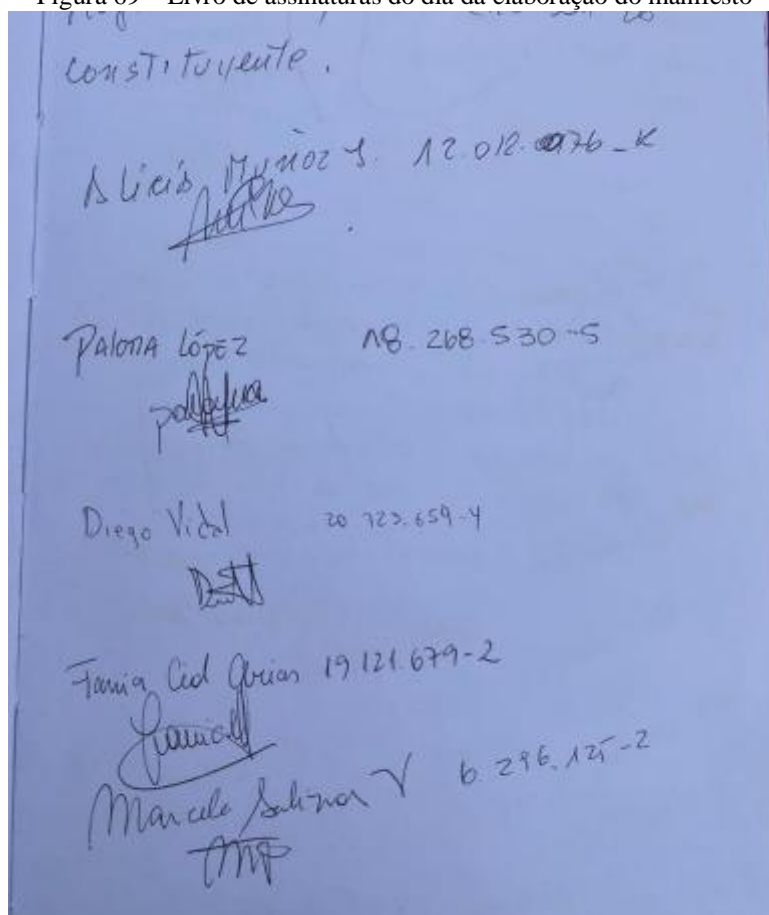 Figura 89 – Livro de assinaturas do dia da elaboração do manifesto
constituyente.
Alicia Muñoz S. 12.012.076-K
Paloma López 18.268.530-5
Diego Vidal 20 723.659-4
Tania Cid Arias 19 121.679-2
Marcela Salinas V 6 296.125-2